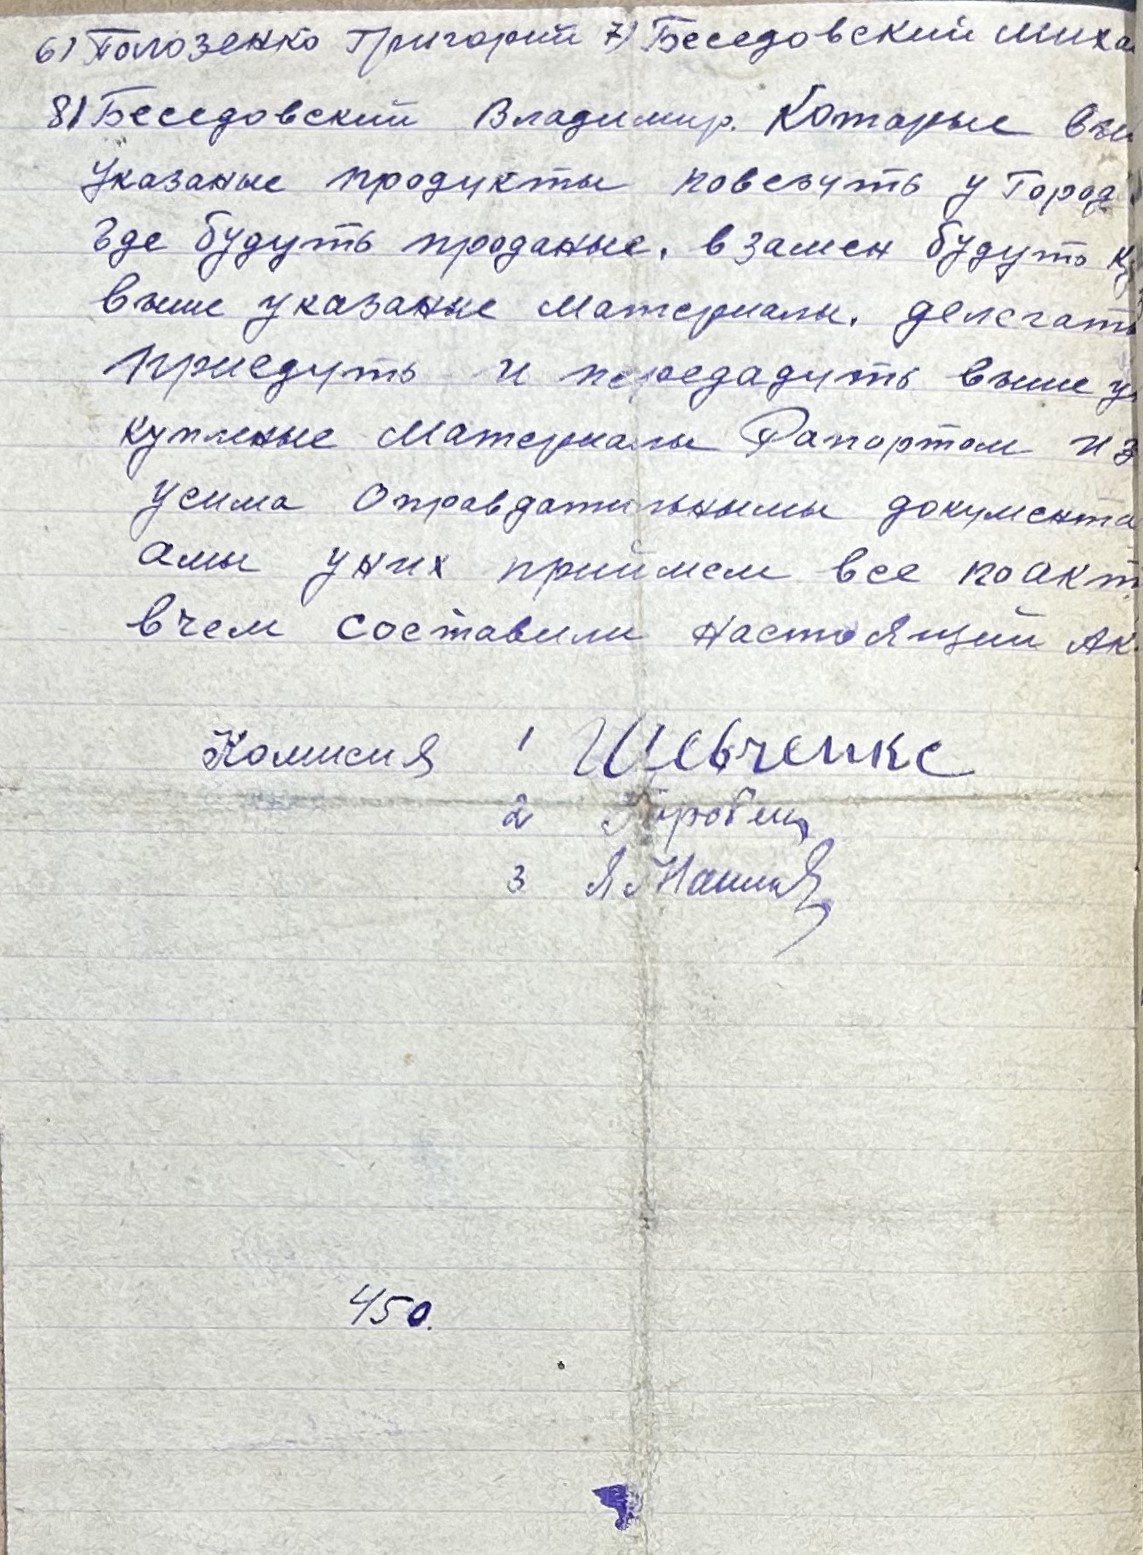 6) Полозенко Григорий 7) Беседовский Миха
8) Беседовский Владимир. Которые выш
указаные продукты повезуть у Город
где будуть проданые. взамен будуть ку
выше указаные материалы. делегаты
приедуть и передадуть выше у
купленые материалы Рапортом из
усима оправдательнымы документа
амы уних приймем все поакт
вчем составили настоящий Ак
Комисия 1 Шевченко
2
3 Я.
450.